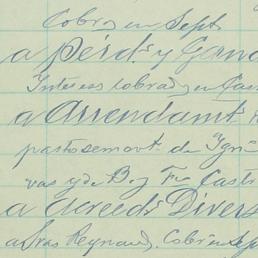 Cobrs en Sept
a Pérds y Gana
Interess cobrads en Cas
a Arrendamt
pastos mont. de Ygn
vas y de B. y Fco Casti
a acreeds Divers
a Sras Reynaud, Cobr en Sep